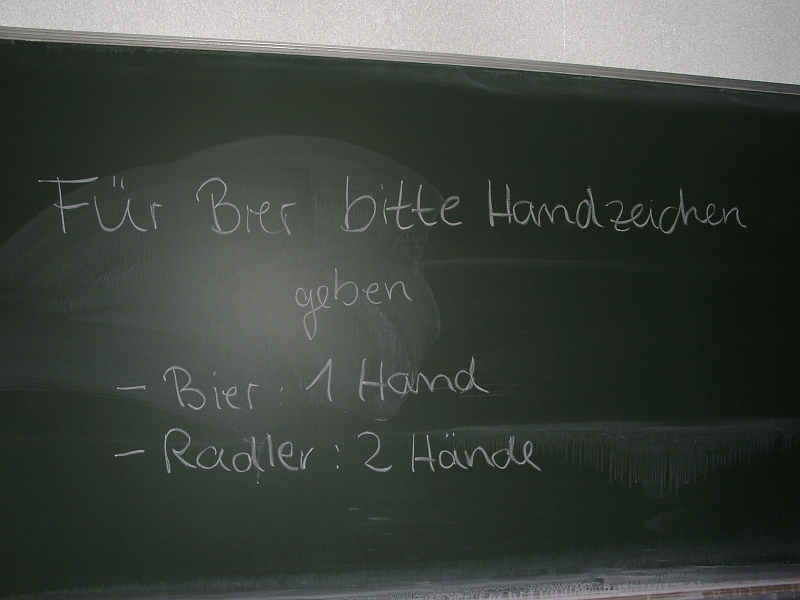 Für Bier bitte Handzeichen
geben
- Bier : 1 Hand
- Radler : 2 Hände